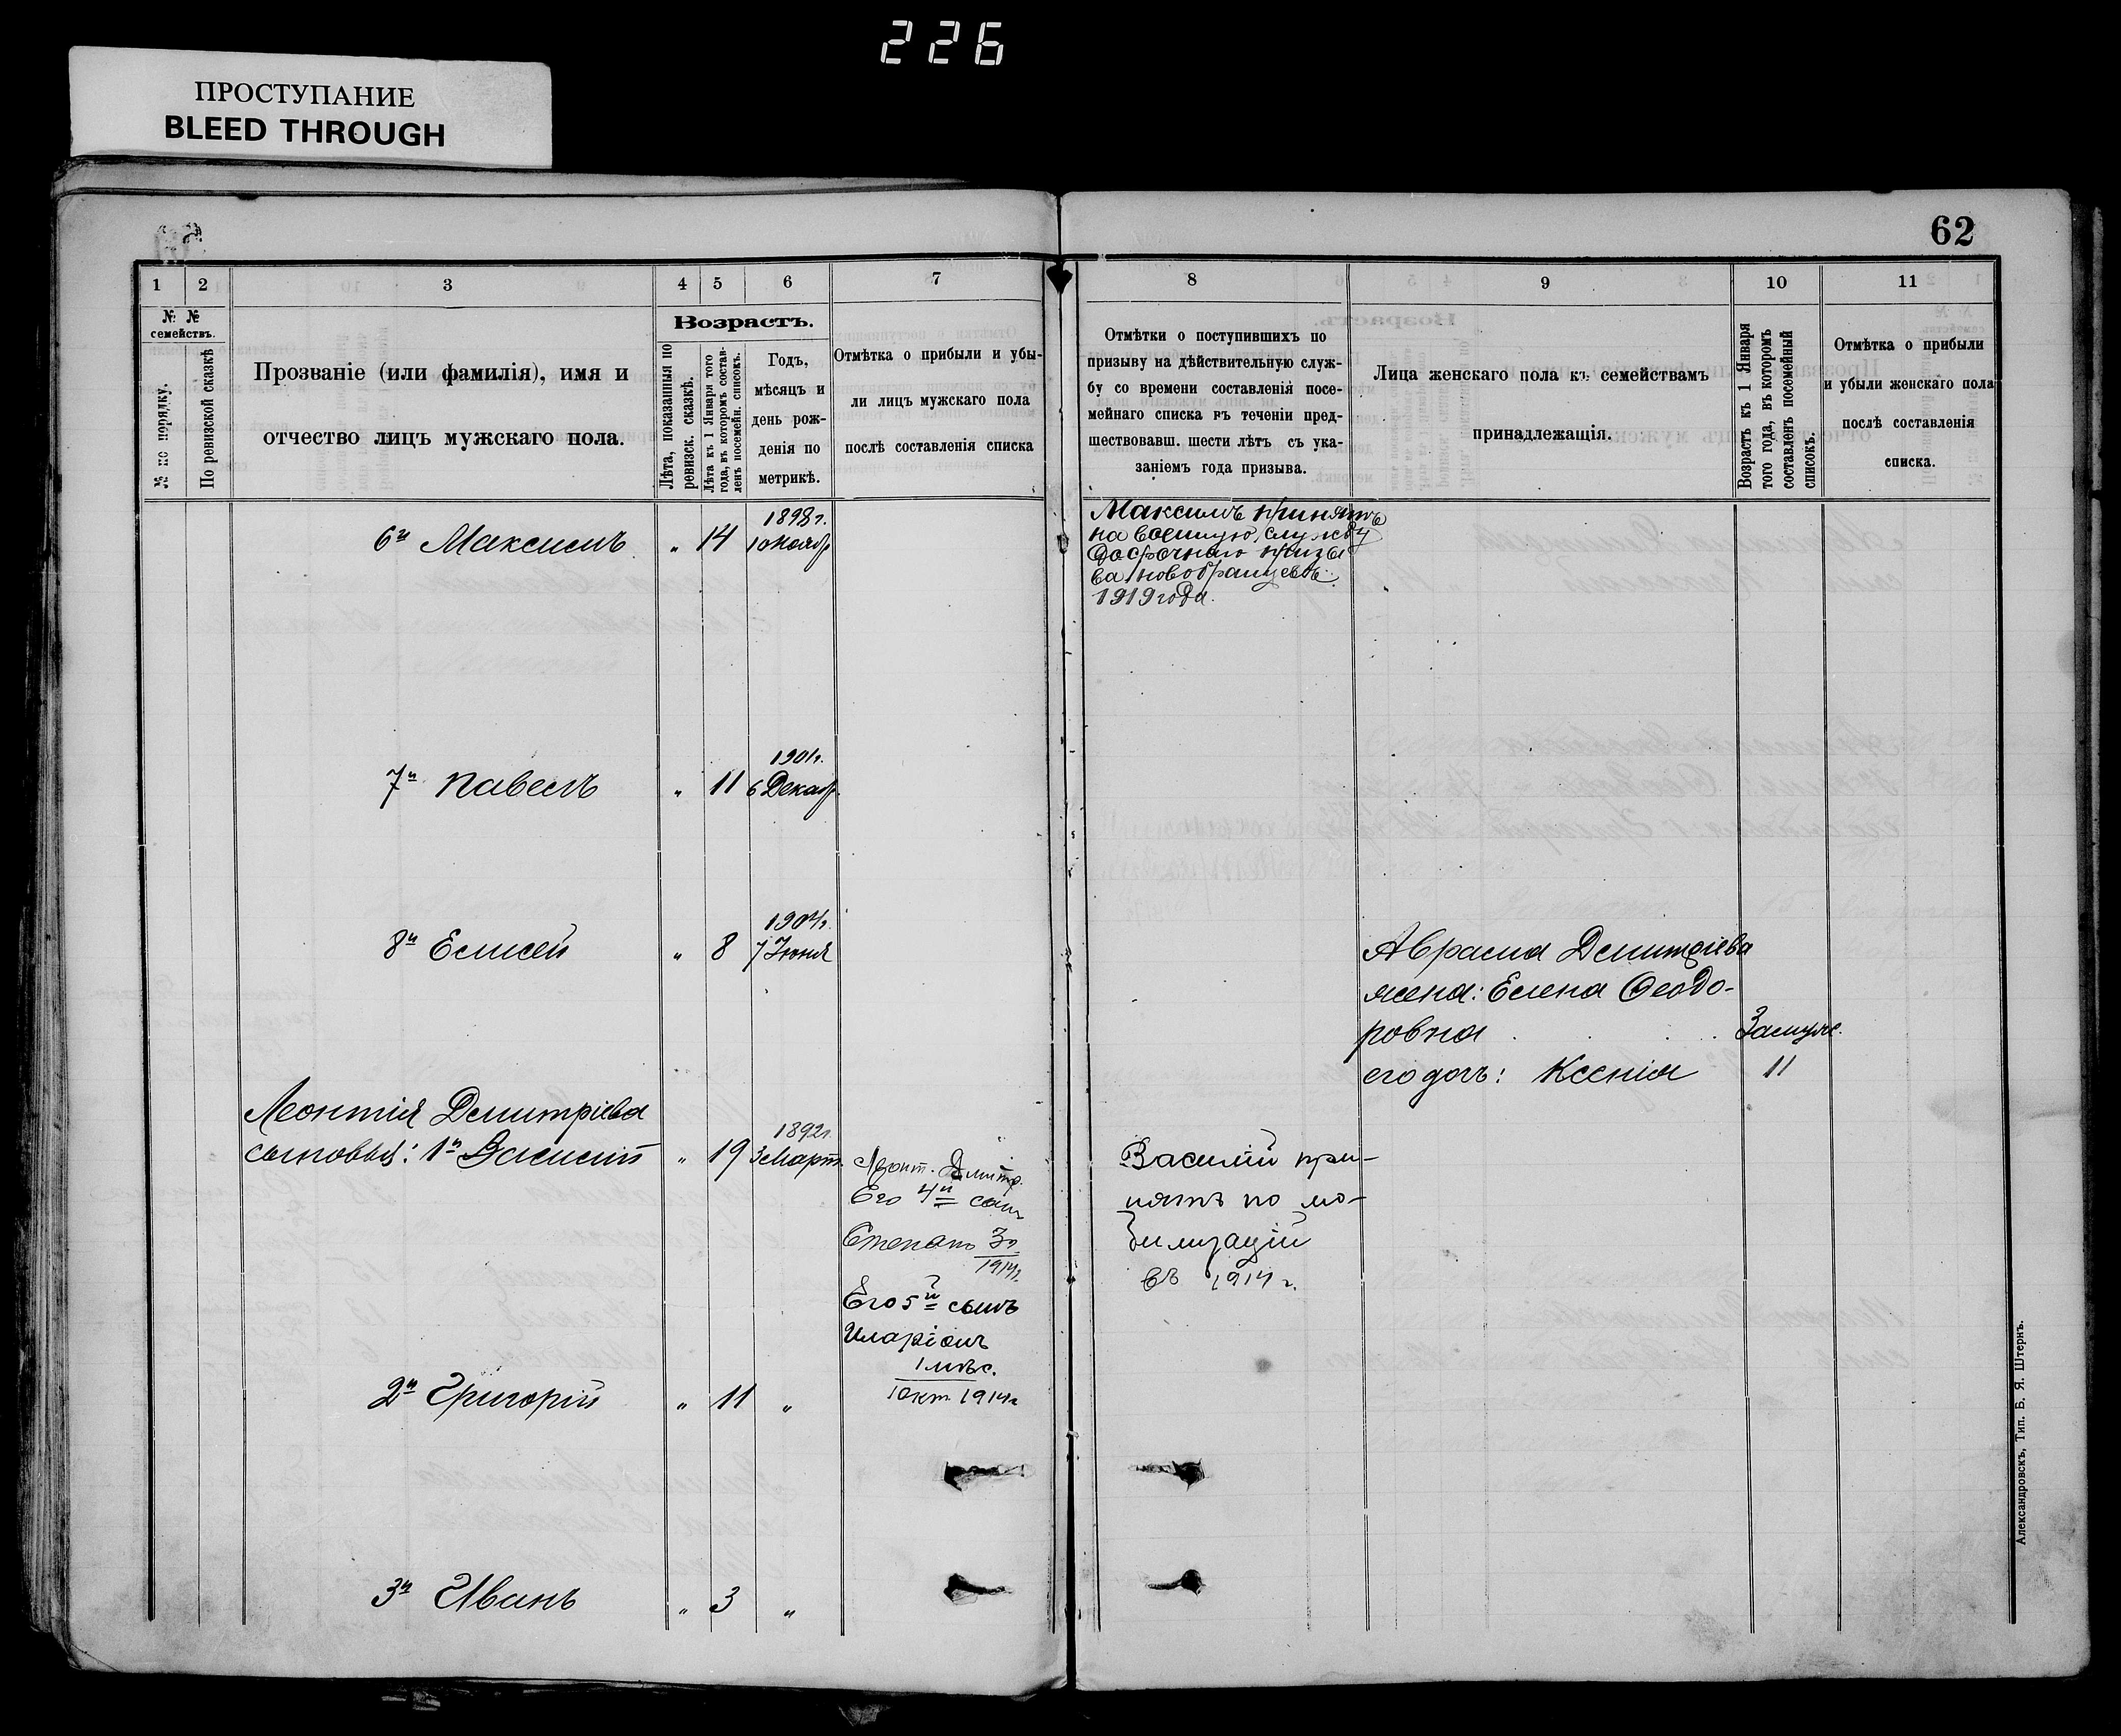 226
ПРОСТУПАНИЕ
BLEED THROUGH
62
1 2 3 4 5 6 7
№ № семействъ.
№ по порядку.
По ревизской сказкѣ
Прозваніе (или фамилія), имя и
отчество лицъ мужскаго пола.
Возрастъ.
Лѣта, показанныя по
ревизск. сказкѣ.
Лѣта къ 1 Января того
года, въ которомъ состав-
ленъ посемейн. списокъ.
Годъ,
мѣсяцъ и
день рож-
денія по
метрикѣ.
Отмѣтка о прибыли и убы-
ли лицъ мужскаго пола
послѣ составленія списка
6й Максимъ „ 14 1898 г.
10 Ноябр
7й Павелъ „ 11 1901 г.
6 Декабр.
8й Елисей „ 8 1904 г.
7 Іюня
Леонтія Демитріева
сыновья: 1й Василій „ 19 1892 г.
3 Март.
Леонт. Димитр.
Его 4й сынъ
Степанъ 3 г.
1914 г.
Его 5й сынъ
Иларіонъ
1 мѣс.
1 окт. 1914 г
2й Григорій „ 11 „
3й Иванъ „ 3 „
8 9 10 11
Отмѣтки о поступившихъ по
призыву на дѣйствительную служ-
бу со времени составленія посе-
мейнаго списка въ теченіи пред-
шествовавш. шести лѣтъ съ ука-
заніемъ года призыва.
Лица женскаго пола къ семействамъ
принадлежащія.
Возрастъ къ 1 Января
того года, въ которомъ
составленъ посемейный
списокъ.
Отмѣтка о прибыли
и убыли женскаго пола
послѣ составленія
списка.
Максимъ принятъ
на военную службу
досрочнаго призы
ва новобранцевъ
1919 года.
Аврама Демитріева
жена: Елена Феодо-
ровна Замуж.
его дочь: Ксенія 11
Василій при-
нятъ по мо-
билизаціи
въ 1914 г.
Александровскъ, Тип. Б. Я. Штернъ.